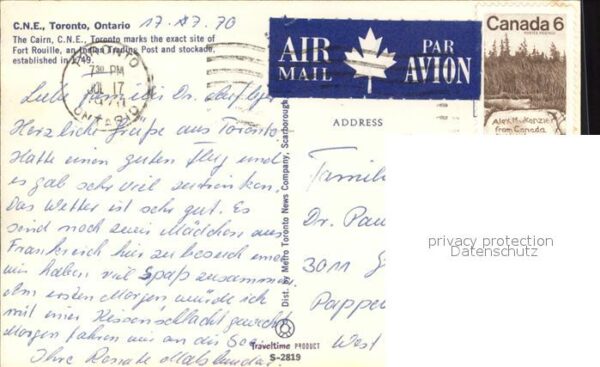 C.N.E., Toronto, Ontario 17.7.70
The Cairn, C.N.E., Toronto marks the exact site of
Fort Rouille, an Indian Trading Post and stockade,
established in 1749.
7:30 PM
JUL 17
ONTARIO
AIR
MAIL
PAR
AVION
Canada 6
POSTES POSTAGE
Alex Mackenzie
from Canada
Liebe Familie Dr.
Herzliche Grüße aus Toronto.
Hatte einen guten Flug und
es gab sehr viel zu trinken.
Das Wetter ist sehr gut. Es
sind noch zwei Mädchen aus
Frankreich hier zu besuch und
wir haben viel Spaß zusammen.
Am ersten Morgen wurde ich
mit einer Kissenschlacht geweckt.
Morgen fahren wir an die See.
Ihre Renate
Dist. by Metro Toronto News Company, Scarborough,
Traveltime PRODUCT
S-2819
ADDRESS
Familie
Dr. Pau
3011
Pappe
West
privacy protection
Datenschutz